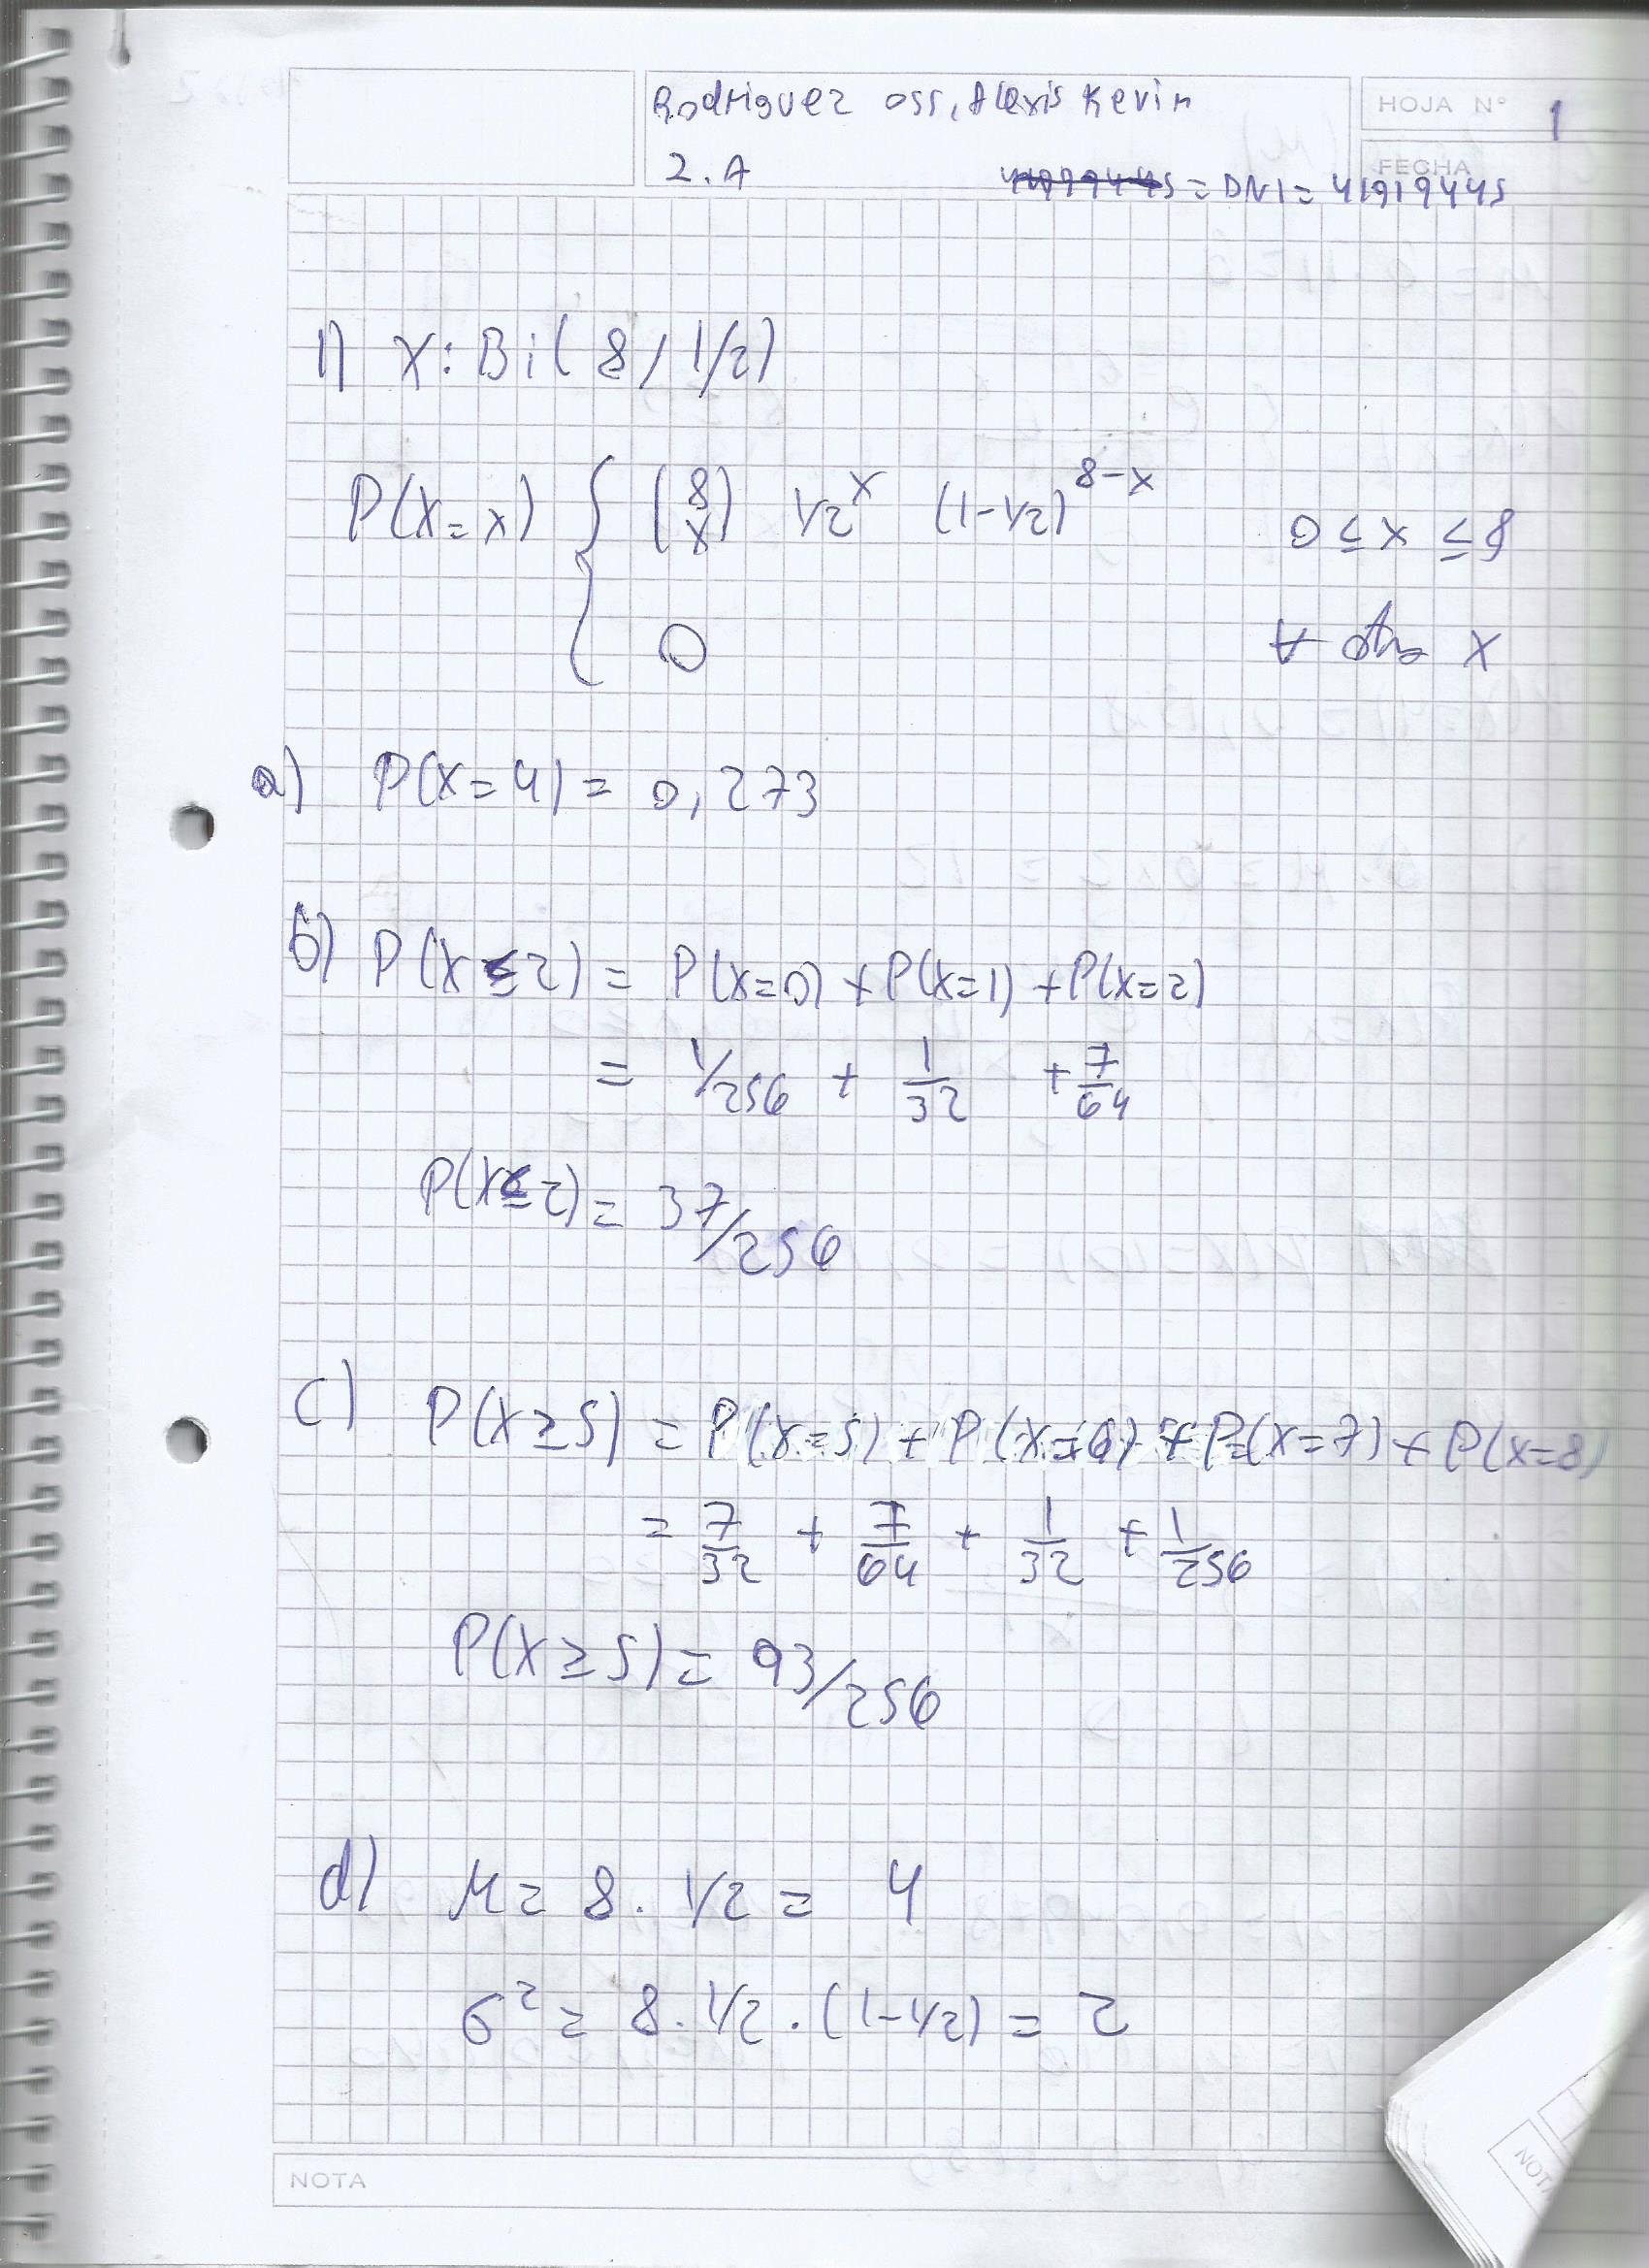 Rodriguez oss, Alexis Kevin
HOJA N° 1
2.A
FECHA
= DNI = 41919445
1) X: Bi( 8 / 1/2)
P(X=x) { (8 x) 1/2^x (1-1/2)^8-x 0 ≤ x ≤ 8
0 ∀ otro x
a) P(X=4) = 0,273
b) P(X≤2) = P(X=0) + P(X=1) + P(X=2)
= 1/256 + 1/32 + 7/64
P(X≤2) = 37/256
c) P(X≥5) = P(X=5) + P(X=6) + P(X=7) + P(X=8)
= 7/32 + 7/64 + 1/32 + 1/256
P(X≥5) = 93/256
d) μ = 8 . 1/2 = 4
σ² = 8 . 1/2 . (1-1/2) = 2
NOTA
NOTA